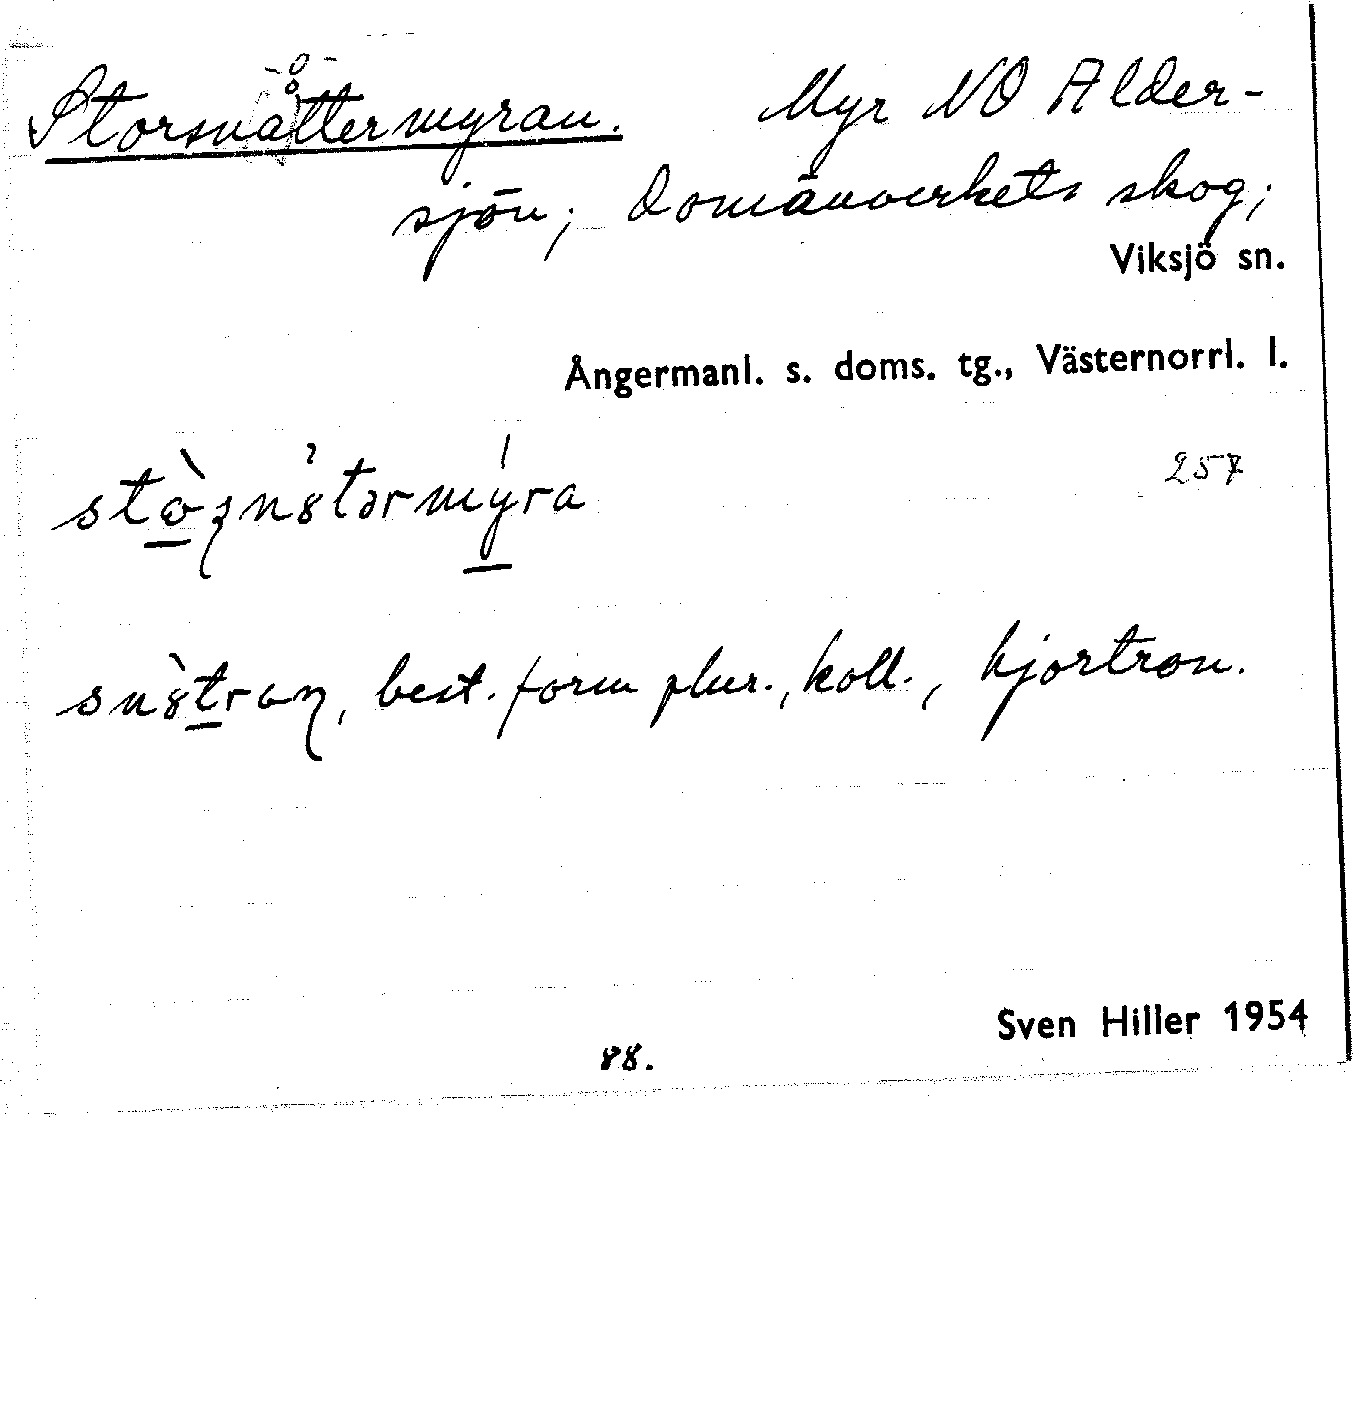 -o-
Storsnåttermyran. Myr NO Älder-
sjön; Domänverkets skog;
Viksjö sn.
Ångermanl. s. doms. tg., Västernorrl. l.
257
best. form plur., koll., hjortron.
Sven Hiller 1954
88.